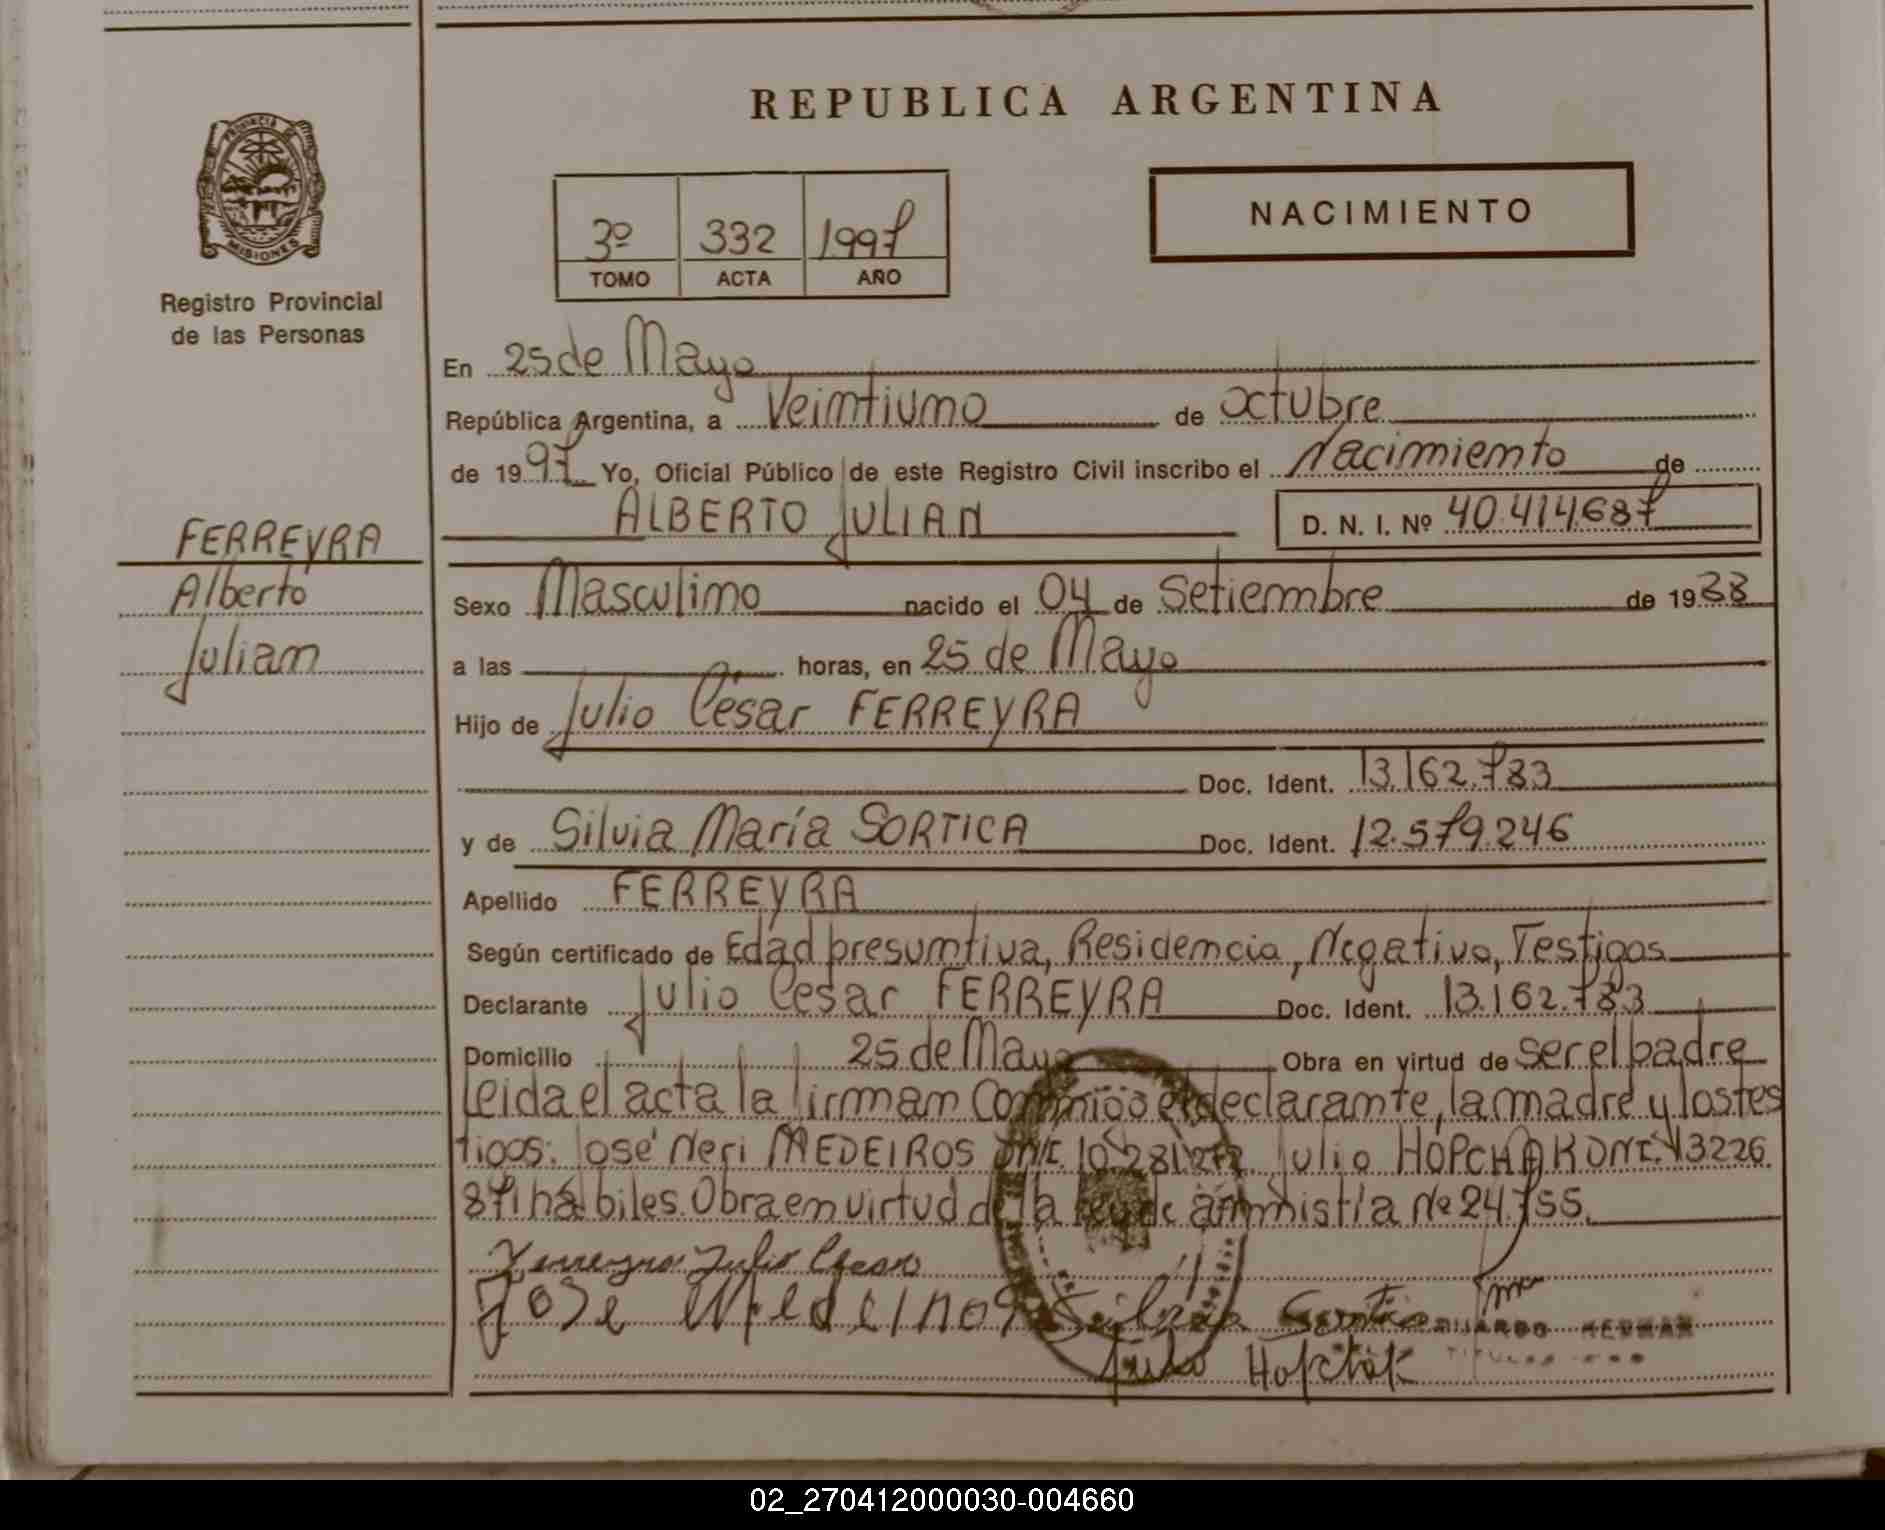 REPUBLICA ARGENTINA
PROVINCIA DE
MISIONES
Registro Provincial
de las Personas
3º 332 1997
TOMO ACTA AÑO
NACIMIENTO
En 25 de Mayo
República Argentina, a Veintiuno de octubre
de 1997 Yo, Oficial Público de este Registro Civil inscribo el Nacimiento de
ALBERTO JULIAN D. N. I. Nº 40.414.687
FERREYRA
Alberto
Julian
Sexo Masculino nacido el 04 de Setiembre de 1988
a las horas, en 25 de Mayo
Hijo de Julio César FERREYRA
Doc. Ident. 13.162.783
y de Silvia María SORTICA Doc. Ident. 12.579.246
Apellido FERREYRA
Según certificado de Edad presumtiva, Residencia, Negativo, Testigos
Declarante Julio Cesar FERREYRA Doc. Ident. 13.162.783
Domicilio 25 de Mayo Obra en virtud de ser el padre
Leida el acta la firman Conmigo el declarante, la madre y los tes
tigos: José Neri MEDEIROS DNI. 10.281.277. Julio HOPCHAK DNI. 13226
871 hábiles. Obra en virtud de la ley de ammistía Nº 24.755.
Ferreyra Julio Cesar
Jose Medeiros Silvia Sortica
EDUARDO
Julio Hopchak
02_270412000030-004660